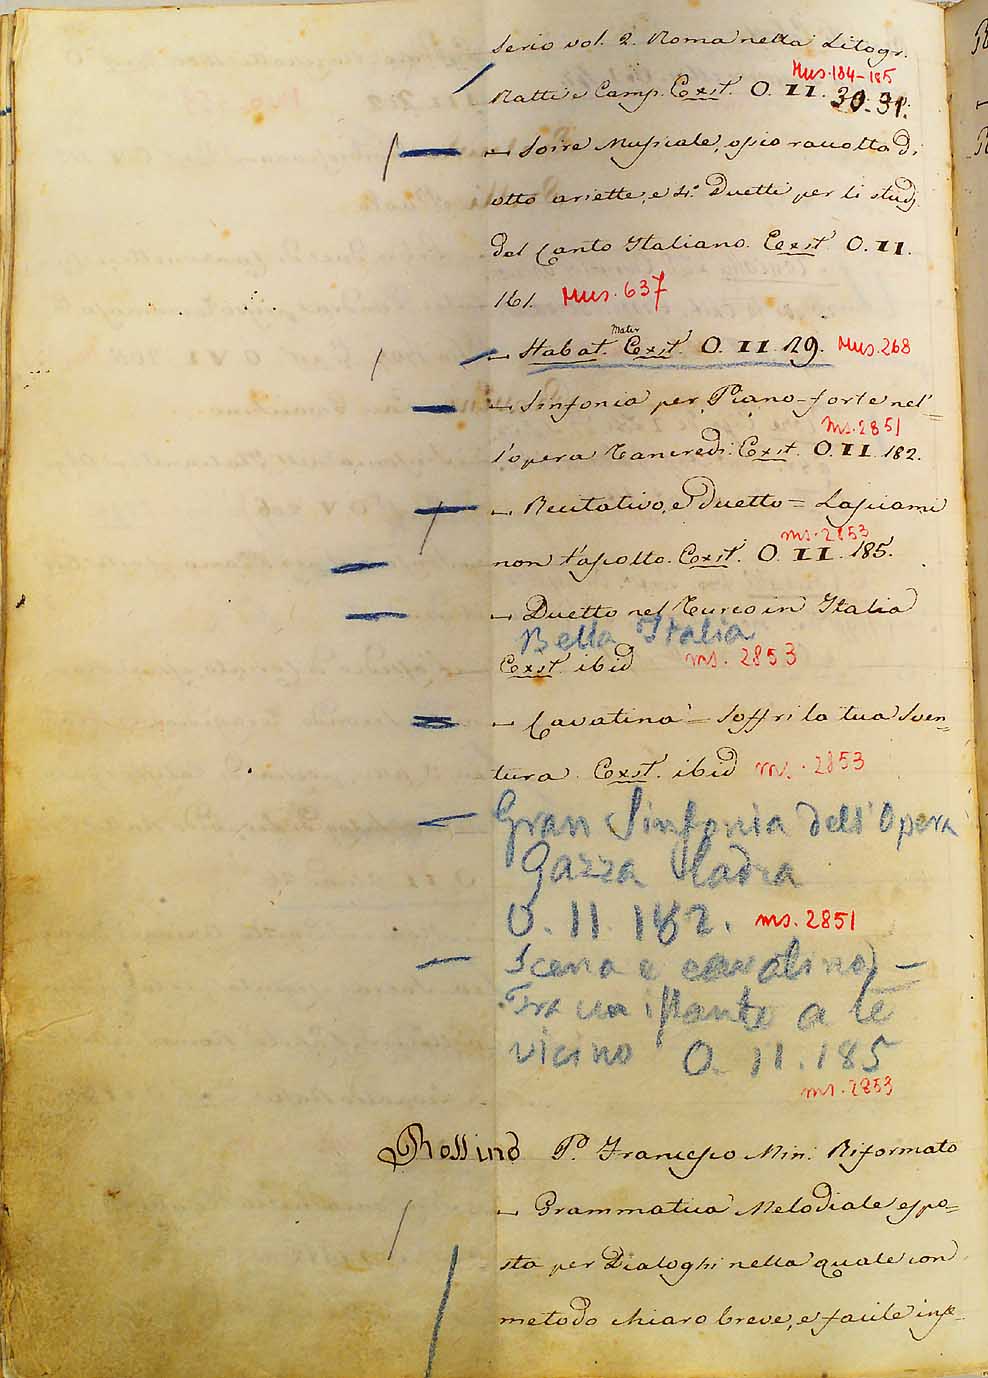 serio vol. 2. Roma nella Litogr.
Mus. 184-185
Ratti e Camp. Exst. O. II. 30. 31.
– Soire Musicale, ossia raccolta di
otto ariette, e 4.º Duetti per li studj
del Canto Italiano. Exst. O. II.
161. Mus. 637
– Stabat Mater Exst. O. II 29. Mus. 268
– Sinfonia per Piano-forte nel=
ms. 2851
l'opera Tancredi. Exst. O. II. 182.
– Recitativo, e Duetto = Lasciami
ms. 2853
non t'ascolto. Exst. O. II. 185.
– Duetto nel Turco in Italia
Bella Italia
Exst. ibid ms. 2853
– Cavatina = Soffri la tua sven=
tura. Exst. ibid ms. 2853
Gran Sinfonia dell'Opera
Gazza Ladra
O. II. 182. ms. 2851
Scena e cavatina –
Fra un istante a te
vicino O. II. 185
ms. 2853
Rossino P. Francesco Min. Riformato
– Grammatica Melodiale espo=
sta per Dialoghi nella quale con
metodo chiaro breve, e facile inse-